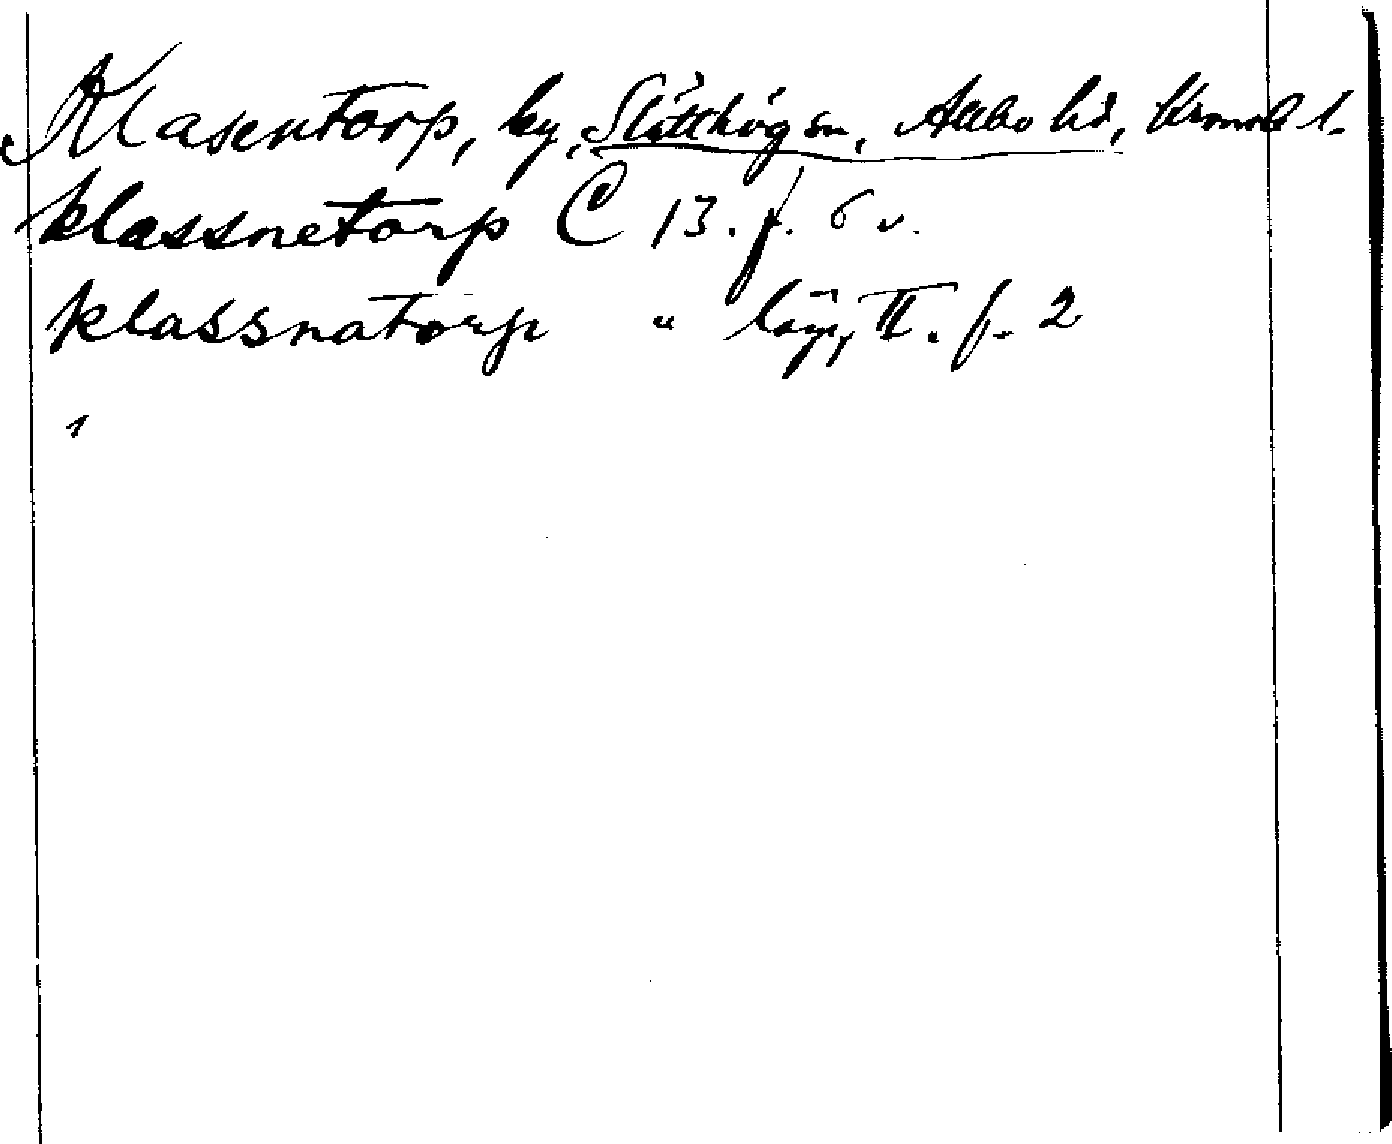 Klasentorp, by, Slätthög sn, Allbo hd, Kronob l.
klassnetorp C 13. f. 6 v.
klassnatorp " läg, II. f. 2